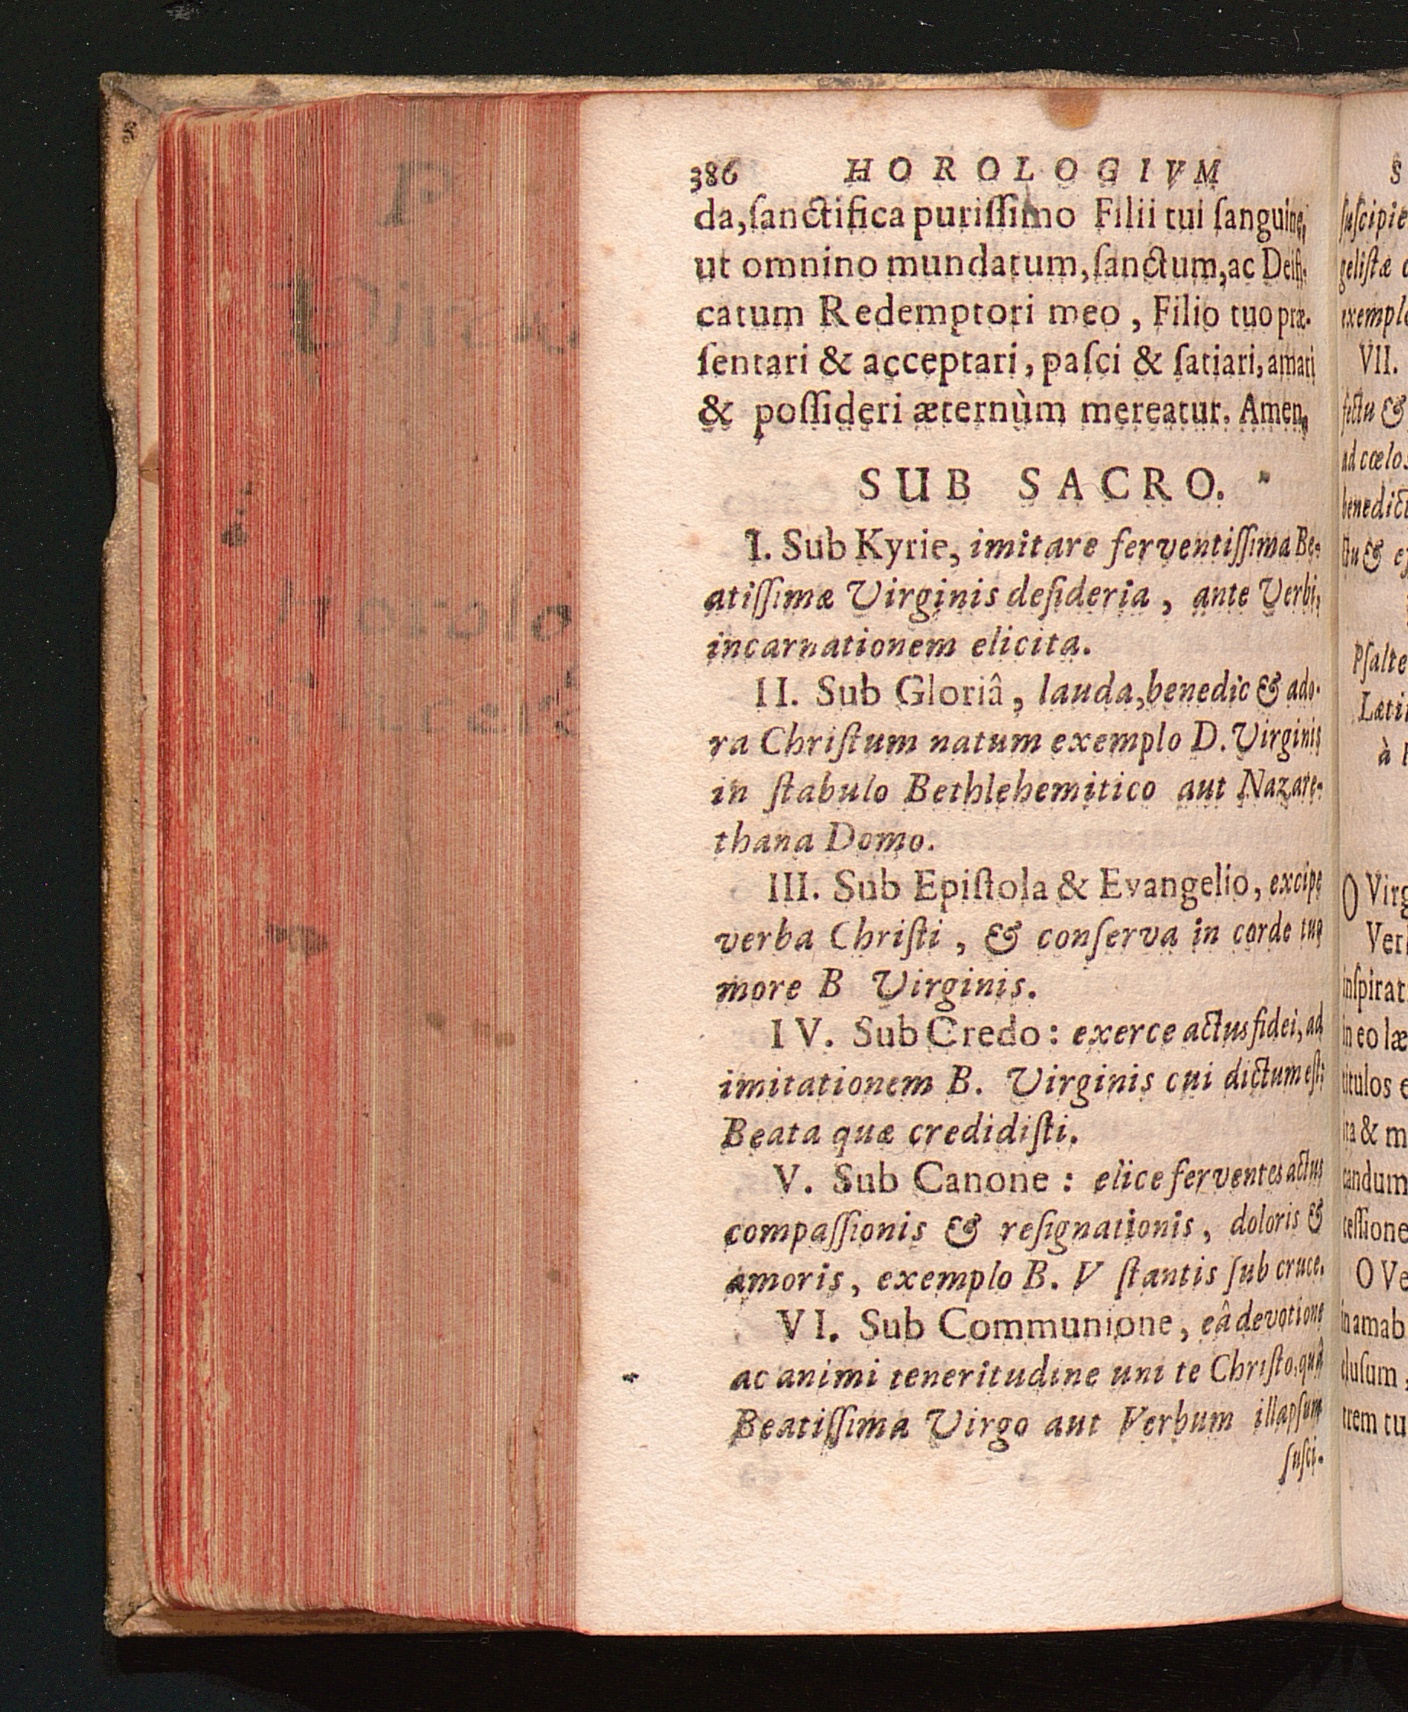 386 HOROLOGIVM
da, ſanctifica puriſſimo Filii tui ſanguine,
ut omnino mundatum, ſanctum, ac Deifi-
catum Redemptori meo, Filio tuo præ-
ſentari & acceptari, paſci & ſatiari, amari
& poſſideri æternùm mereatur. Amen.
SUB SACRO.
I. Sub Kyrie, imitare ferventiſſima Be-
atiſſimæ Virginis deſideria, ante Verbi,
incarnationem elicita.
II. Sub Gloriâ, lauda, benedic & ado-
ra Chriſtum natum exemplo D. Virginis
in ſtabulo Bethlehemitico aut Nazare-
thana Domo.
III. Sub Epiſtola & Evangelio, excipe
verba Chriſti, & conſerva in corde tuo
more B Virginis.
IV. Sub Credo: exerce actus fidei, ad
imitationem B. Virginis cui dictum eſt:
Beata quæ credidiſti.
V. Sub Canone: elice ferventes actus
compaſſionis & reſignationis, doloris &
amoris, exemplo B. V ſtantis ſub cruce.
VI. Sub Communione, eâ devotione
ac animi teneritudine uni te Chriſto, quâ
Beatiſſima Virgo aut Verbum illapſum
ſuſci-
S
ſuſcipie
geliſtæ
exemplo
VII.
&
ad cœlos
benedict
&
Pſalte
Læti
à
O Virg
Ver
inſpirat
in eo læ
titulos e
& m
tandum
ceſſione
O Ve
inamab
cluſum,
trem tu